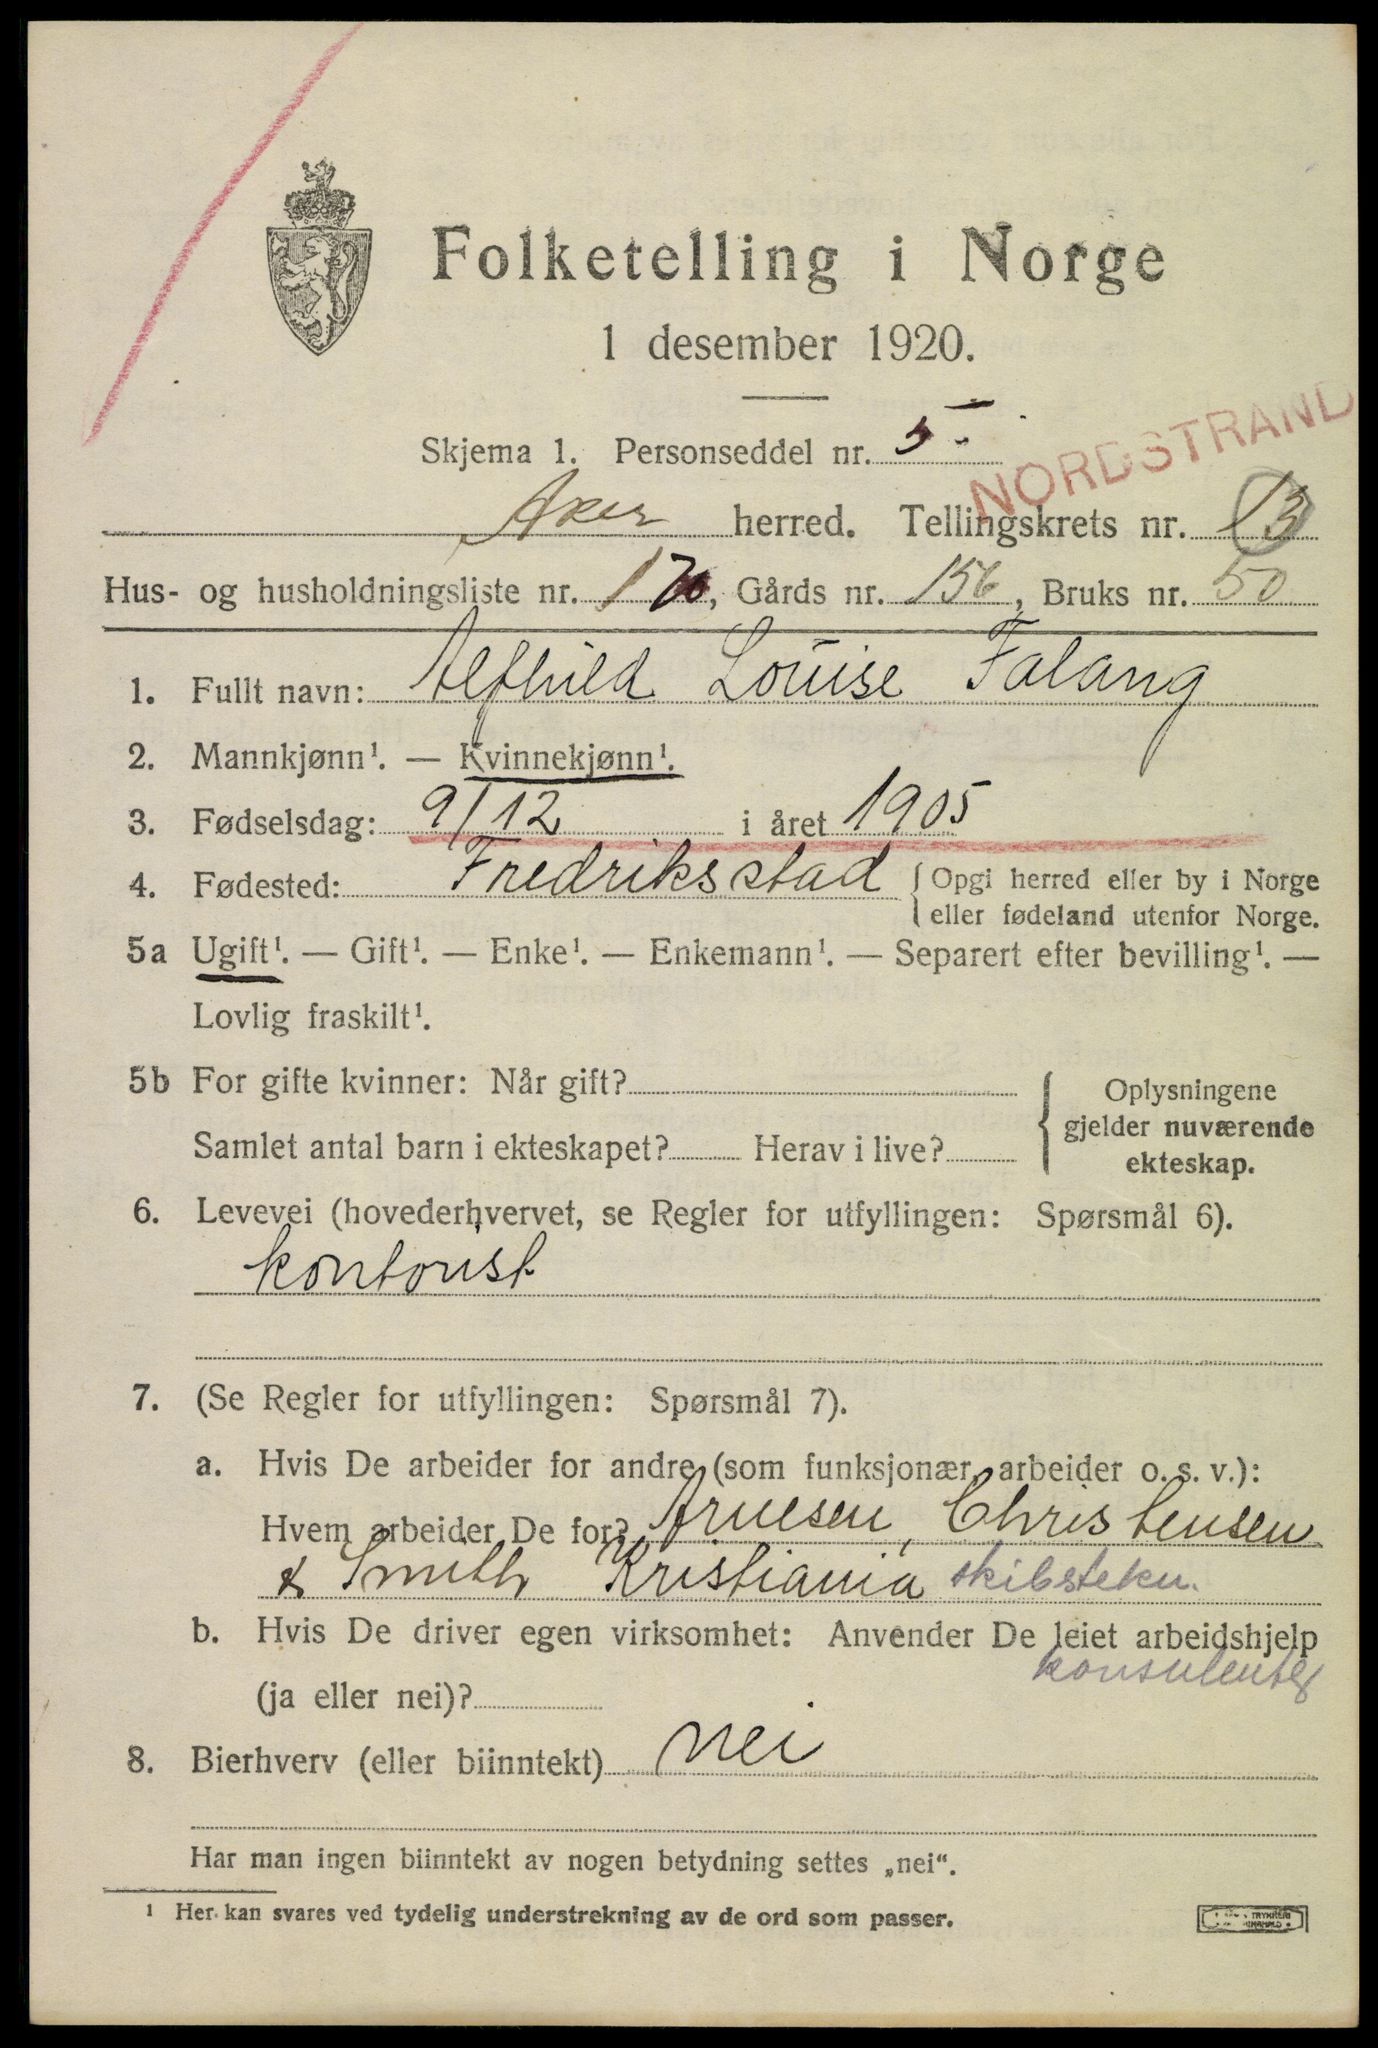 Folketelling i Norge
1 desember 1920.
Skjema 1. Personseddel nr. 5
NORDSTRAND
Aker herred. Tellingskrets nr. 13
Hus- og husholdningsliste nr. 170, Gårds nr. 156, Bruks nr. 50
1. Fullt navn: Alfhild Louise Falang
2. Mannkjønn¹. — Kvinnekjønn¹.
3. Fødselsdag: 9/12 i året 1905
4. Fødested: Fredriksstad { Opgi herred eller by i Norge
eller fødeland utenfor Norge.
5a Ugift¹. — Gift¹. — Enke¹. — Enkemann¹. — Separert efter bevilling¹. —
Lovlig fraskilt¹.
5b For gifte kvinner: Når gift?
Samlet antal barn i ekteskapet? Herav i live?
{ Oplysningene
gjelder nuværende
ekteskap.
6. Levevei (hovederhvervet, se Regler for utfyllingen: Spørsmål 6).
kontorist
7. (Se Regler for utfyllingen: Spørsmål 7).
a. Hvis De arbeider for andre (som funksjonær, arbeider o. s. v.):
Hvem arbeider De for? Arnesen, Christensen
& Smith Kristiania skibstekn.
b. Hvis De driver egen virksomhet: Anvender De leiet arbeidshjelp
konsulenter
(ja eller nei)?
8. Bierhverv (eller biinntekt) nei
Har man ingen biinntekt av nogen betydning settes „nei“.
¹ Her kan svares ved tydelig understrekning av de ord som passer.